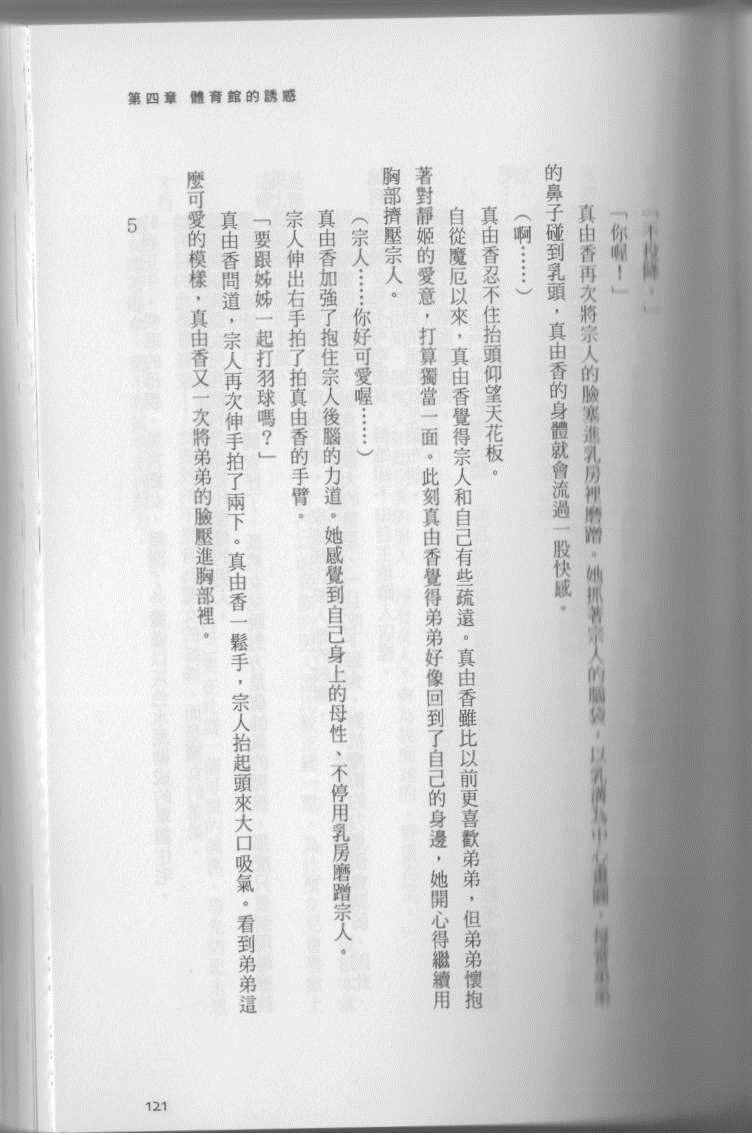 第四章 體育館的誘惑
「你喔！」
真由香再次將宗人的臉塞進乳房裡磨蹭。她抓著宗人的腦袋，以乳溝為中心畫圓，每當弟弟
的鼻子碰到乳頭，真由香的身體就會流過一股快感。
（啊……）
真由香忍不住抬頭仰望天花板。
自從魔厄以來，真由香覺得宗人和自己有些疏遠。真由香雖比以前更喜歡弟弟，但弟弟懷抱
著對靜姬的愛意，打算獨當一面。此刻真由香覺得弟弟好像回到了自己的身邊，她開心得繼續用
胸部擠壓宗人。
（宗人……你好可愛喔……）
真由香加強了抱住宗人後腦的力道。她感覺到自己身上的母性、不停用乳房磨蹭宗人。
宗人伸出右手拍了拍真由香的手臂。
「要跟姊姊一起打羽球嗎？」
真由香問道，宗人再次伸手拍了兩下。真由香一鬆手，宗人抬起頭來大口吸氣。看到弟弟這
麼可愛的模樣，真由香又一次將弟弟的臉壓進胸部裡。
5
121